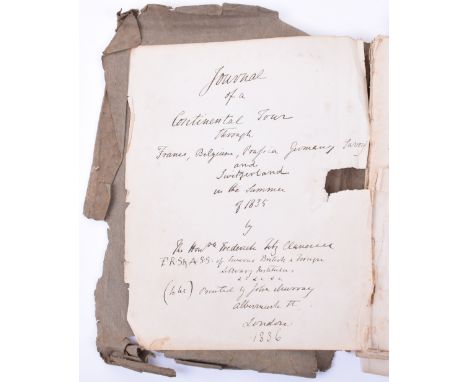 Journal
of a
Continental Tour
through
France, Belgium, Prussia Germany Savoy
and
Switzerland
in the Summer
of 1835
by
The Honble Frederick
F.R.S. & A.S.S. of Various British & Foreign
Literary Institutions
&c &c &c
(to be) Printed by John Murray
Albermarle St.
London
1836